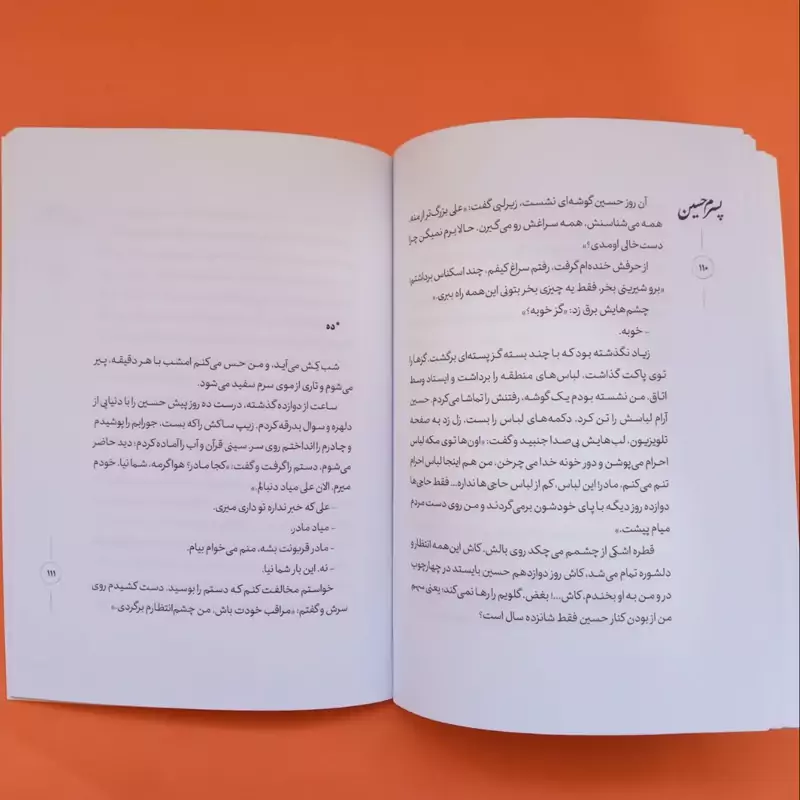 پسرم حسین
۱۱۰
آن روز حسین گوشه‌ای نشست، زیرلبی گفت: «علی بزرگ‌تر از منه.
همه می‌شناسنش. همه سراغش رو می‌گیرن. حالا برم نمیگن چرا
دست خالی اومدی؟»
از حرفش خنده‌ام گرفت، رفتم سراغ کیفم. چند اسکناس برداشتم:
«برو شیرینی بخر، فقط یه چیزی بخر بتونی این همه راه ببری.»
چشم‌هایش برق زد: «گز خوبه؟»
- خوبه.
زیاد نگذشته بود که با چند بسته گز پسته‌ای برگشت. گزها را
توی پاکت گذاشت. لباس‌های منطقه را برداشت و ایستاد وسط
اتاق. من نشسته بودم یک گوشه، رفتنش را تماشا می‌کردم. حسین
آرام لباسش را تن کرد. دکمه‌های لباس را بست. زل زد به صفحه
تلویزیون، لب‌هایش بی‌صدا جنبید و گفت: «اون‌ها توی مکه لباس
احرام می‌پوشن و دور خونه خدا می‌چرخن، من هم اینجا لباس احرام
تنم می‌کنم. مادر! این لباس، کم از لباس حاجی‌ها نداره... فقط حاجی‌ها
دوازده روز دیگه با پای خودشون برمی‌گردند و من روی دست مردم
میام پیشت.»
قطره اشکی از چشمم می‌چکد روی بالش. کاش این همه انتظار و
دلشوره تمام می‌شد، کاش روز دوازدهم حسین بایستد در چهارچوب
در و من به او بخندم، کاش...! بغض، گلویم را رها نمی‌کند؛ یعنی سهم
من از بودن کنار حسین فقط شانزده سال است؟
*ده
شب کِش می‌آید، و من حس می‌کنم امشب با هر دقیقه، پیر
می‌شوم و تاری از موی سرم سفید می‌شود.
ساعت از دوازده گذشته، درست ده روز پیش حسین را با دنیایی از
دلهره و سوال بدرقه کردم. زیپ ساکش را که بست. جورابم را پوشیدم
و چادرم را انداختم روی سر. سینی قرآن و آب را آماده کردم؛ دید حاضر
می‌شوم، دستم را گرفت و گفت: «کجا مادر؟ هوا گرمه، شما نیا، خودم
میرم. الان علی میاد دنبالم.»
- علی که خبر نداره تو داری میری.
- میاد مادر.
- مادر قربونت بشه، منم می‌خوام بیام.
- نه. این بار شما نیا.
خواستم مخالفت کنم که دستم را بوسید. دست کشیدم روی
سرش و گفتم: «مراقب خودت باش، من چشم‌انتظارم برگردی.»
۱۱۱